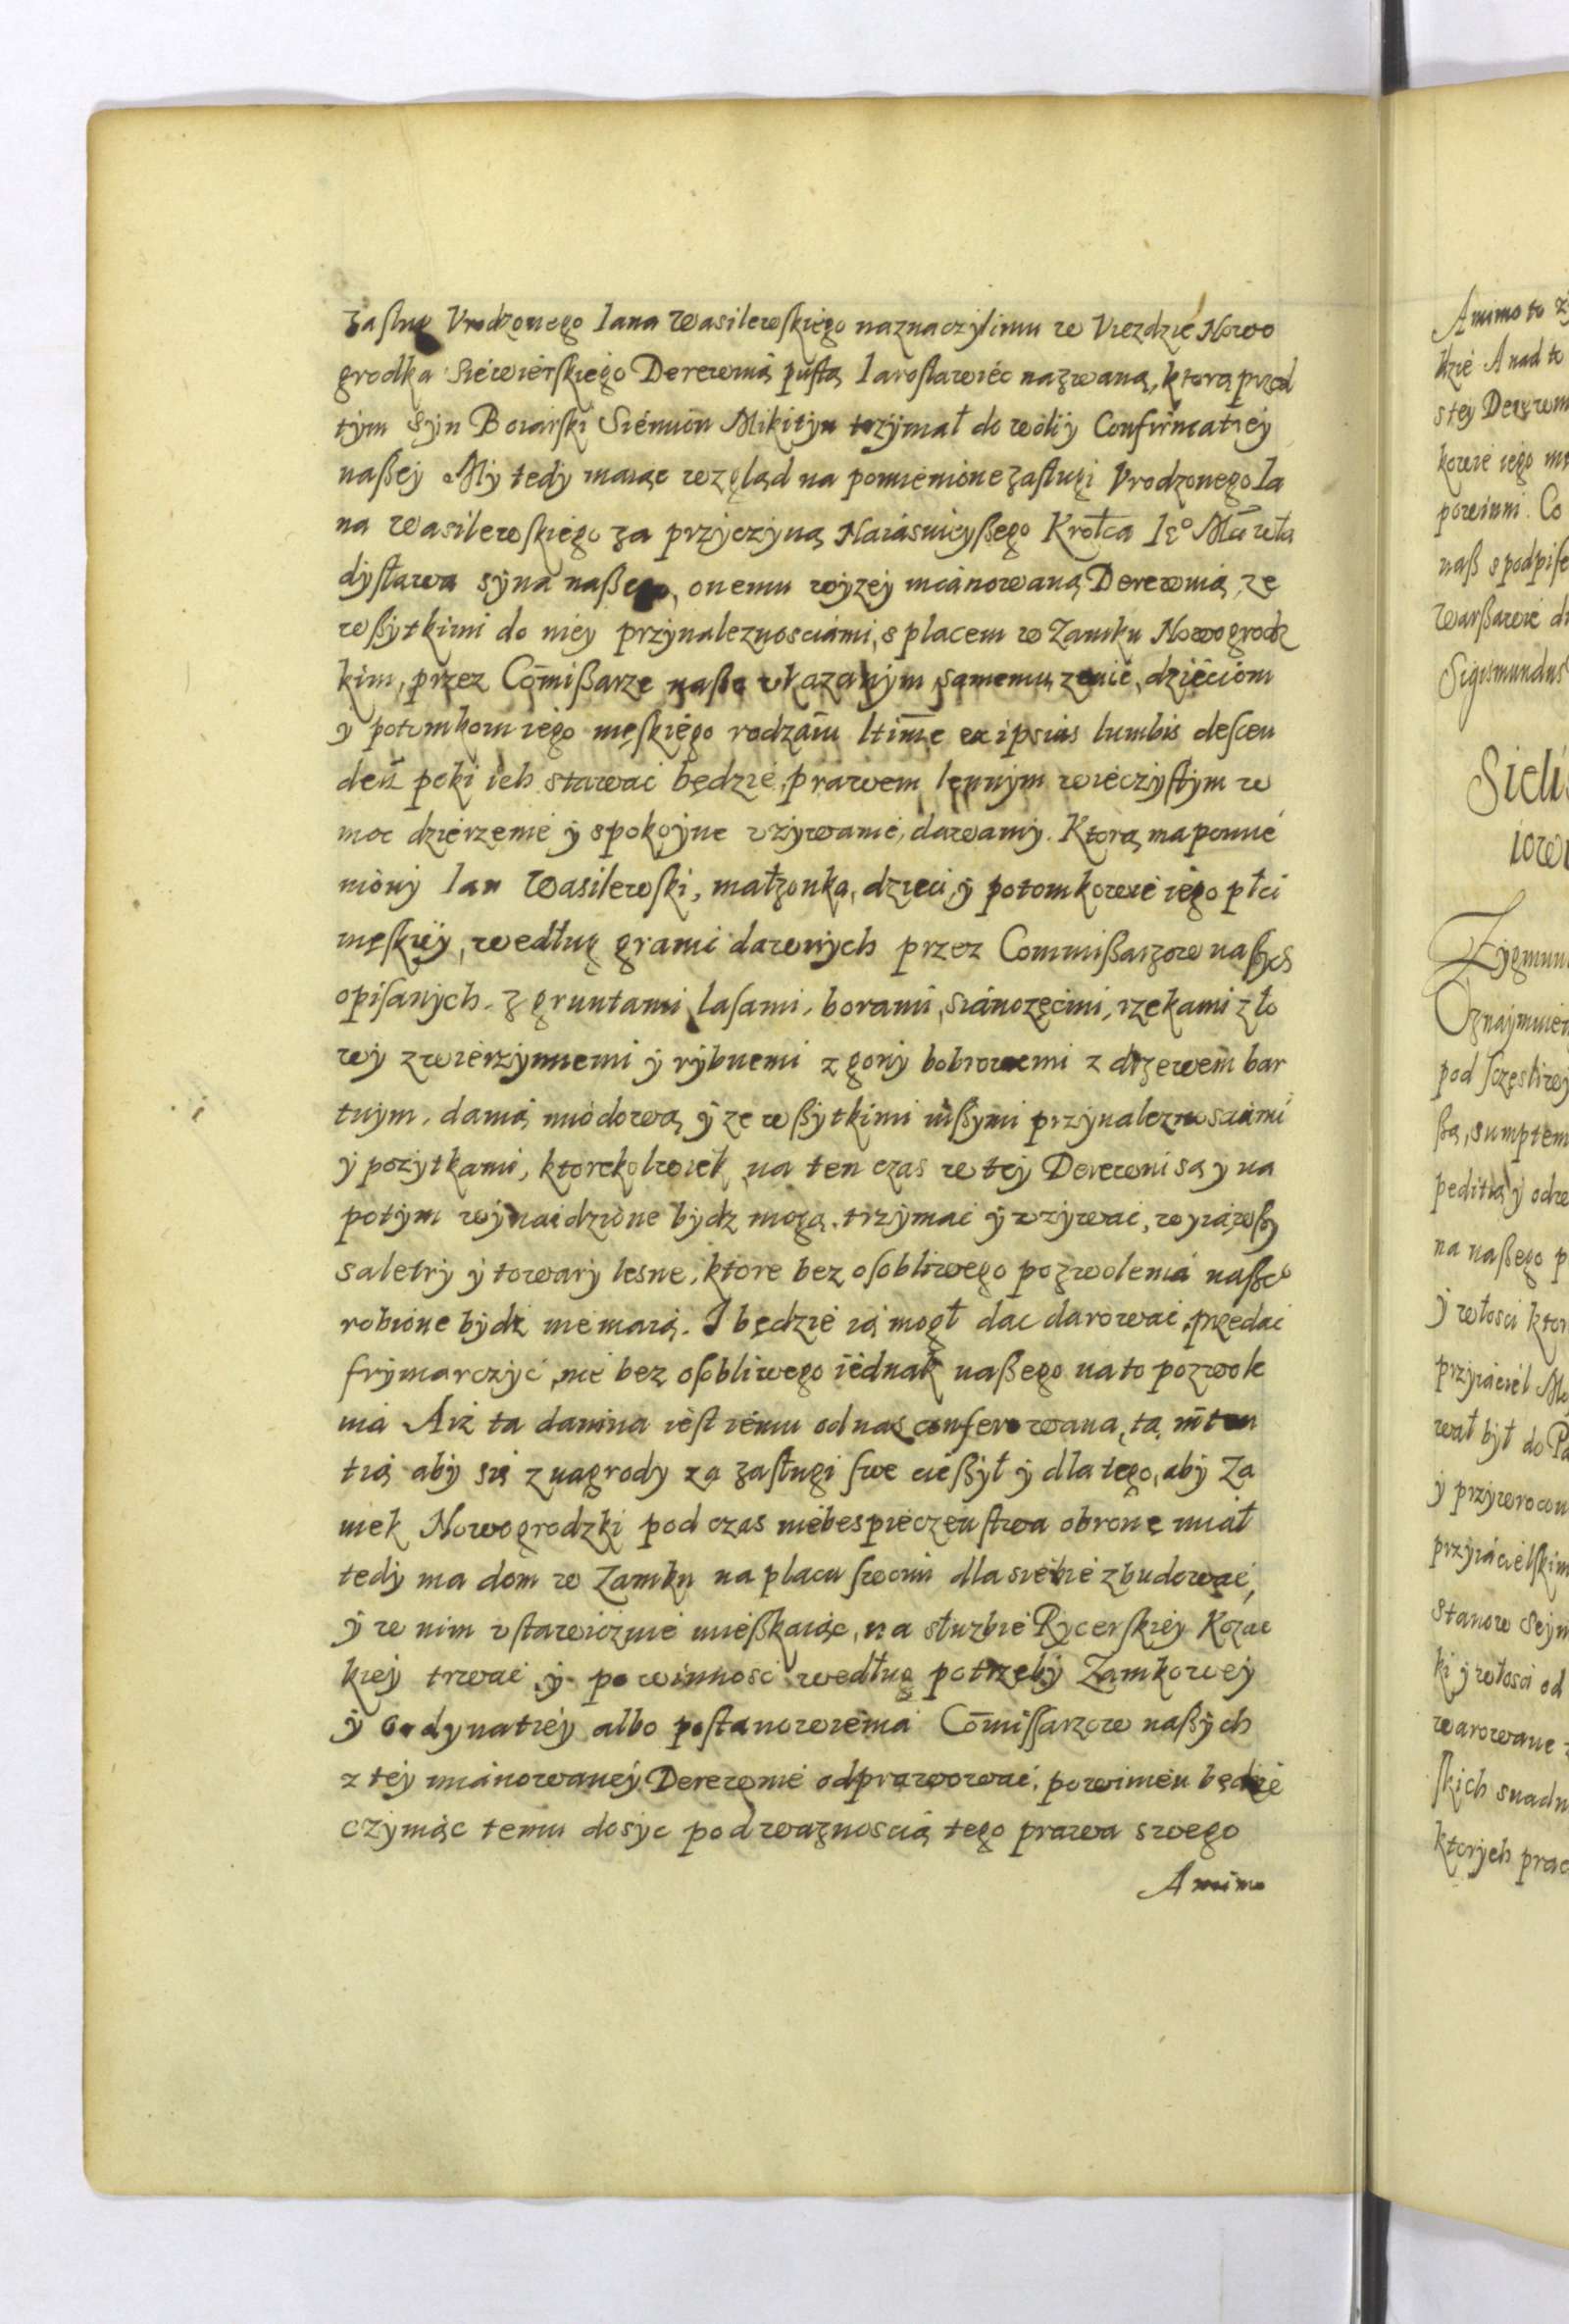 zasług Vrodzonego Iana Wasilewskiego naznaczyli mu w Viezdzie Nowo
grodka Siewierskiego Derewnią pustą Iarosławiec nazwaną, ktorą przed
tym Syn Boiarski Siemion Mikityn trzymał do woliy Confirmatiey
naßey My tedy maiąc wzgląd na pomienione zasługi Vrodzonego Ia
na Wasilewskiego za przyczyną Naiasnieyßego Krolca Ie° Mci Wła
dysława syna naßego, onemu wyzey mianowaną Derewnią, ze
wßytkimi do niey przynaleznosciami, s placem w Zamku Nowogrodz
kim, przez Com̄ißarze naße vkazanym samemu, zenie, dzieciom
y potomkom iego męskiego rodzaiu ltim̄e ex ipsius lumbis descen
deñ poki ich stawac będzie, prawem lennym wieczystym w
moc dzierzenie y spokoyne vzywanie, dawamy. Ktorą ma pomie
niony Ian Wasilewski, małzonka, dzieci y potomkowie iego płci
męskiey, według granic dawnych przez Commißarzow naßych
opisanych. z gruntami lasami, borami, sianozęcimi, rzekami z ło
wy zwierzynnemi y rybnemi z gony bobrowemi z drzewem bar
tnym, danią miodową y ze wßytkimi inßymi przynaleznosciami
y pozytkami, ktorekolwiek na ten czas w tey Derewni są y na
potym wynaidzione bydz mogą. trzymac y vzywac, wyiąwßy
saletry y towary lesne, ktore bez osobliwego pozwolenia naße°
robione bydz nie maią. I będzie ią mogł dac darowac, przedac
frymarczyc, nie bez osobliwego iednak naßego na to pozwole
nia Aiz ta danina iest iemu od nas conferowana, tą inten
tią aby się z nagrody za zasługi swe cießył y dla tego, aby Za
mek Nowogrodzki pod czas niebespieczenstwa obronę miał
tedy ma dom w Zamku na placu swoim dla siebie zbudowac,
y w nim vstawicznie mießkaiąc, na słuzbie Rycerskiey Kozac
kiey trwac y powinnosc według potrzeby Zamkowey
y ordynatiey albo postanowienia Com̄issarzow naßych
z tey mianowaney Derewnie odprawowac, powinien będzie
czyniąc temu dosyc pod waznoscią tego prawa swego
A mimo
A mimo to
dzie A nad to
stey Derewn
kowie iego
powinni. Co
naß s podpise
Warßawie
Sigismundus
Zygmun
Oznaymuiem
pod
ßą, sumptem
peditią y
na naßego p
y włosci ktor
przyiaciel
wał był do
y przywrocon
przyiacielskim
stanow Seym
ki y włosci od
warowane
skich snadn
ktorych prac